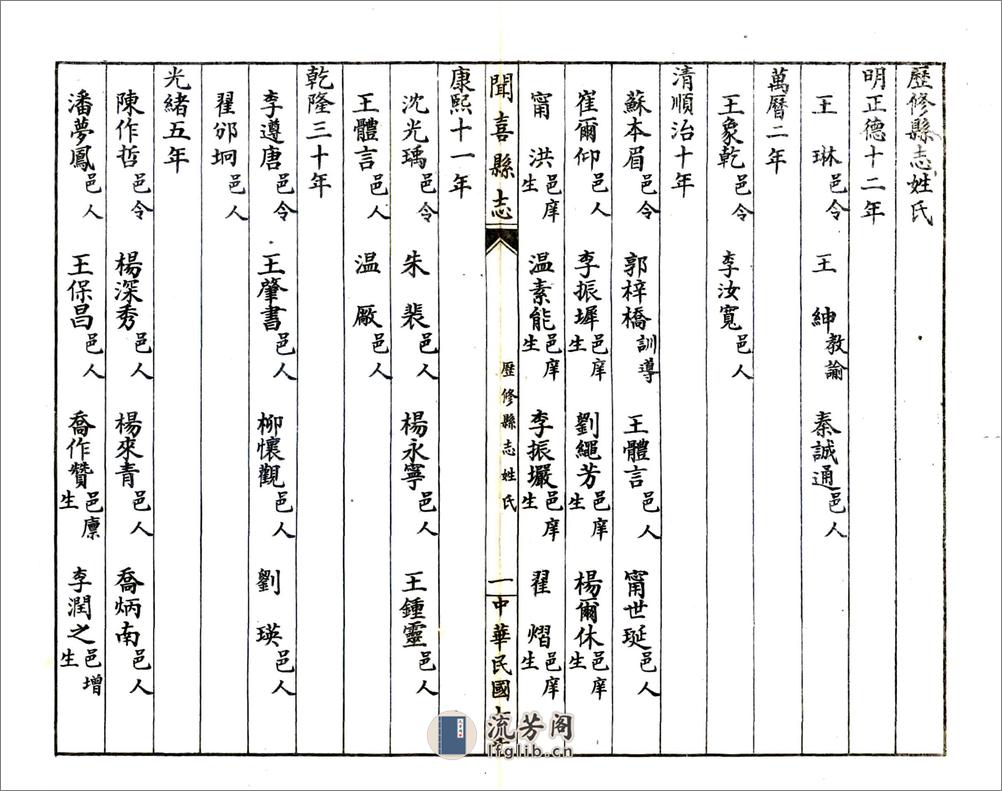 歷修縣志姓氏
明正德十二年
王　琳邑令　王　紳教諭　秦誠通邑人
萬曆二年
王象乾邑令　李汝寬邑人
清順治十年
蘇本眉邑令　郭梓橋訓導　王體言邑人　甯世珽邑人
崔爾仰邑人　李振墀邑庠生　劉繩芳邑庠生　楊爾休邑庠生
甯　洪邑庠生　温素能邑庠生　李振巖邑庠生　翟　熠邑庠生
聞喜縣志　歷修縣志姓氏　一　中華民國
康熙十一年
沈光瑀邑令　朱　裴邑人　楊永寧邑人　王鍾靈邑人
王體言邑人　温　厰邑人
乾隆三十年
李遵唐邑令　王肇書邑人　柳懷觀邑人　劉　瑛邑人
翟邠坰邑人
光緒五年
陳作哲邑令　楊深秀邑人　楊來青邑人　喬炳南邑人
潘夢鳳邑人　王保昌邑人　喬作贊邑廩生　李潤之邑增生
流芳阁
lfglib.cn